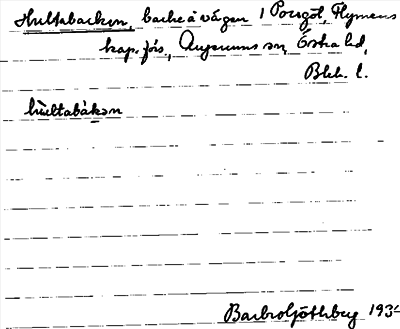 Hultabacken, backe å vägen i Poungöl, Flymens
kap. förs, Augerums sn, Östra hd,
Blek. l.
hùltabàkən
Barbro Ljöthberg 193